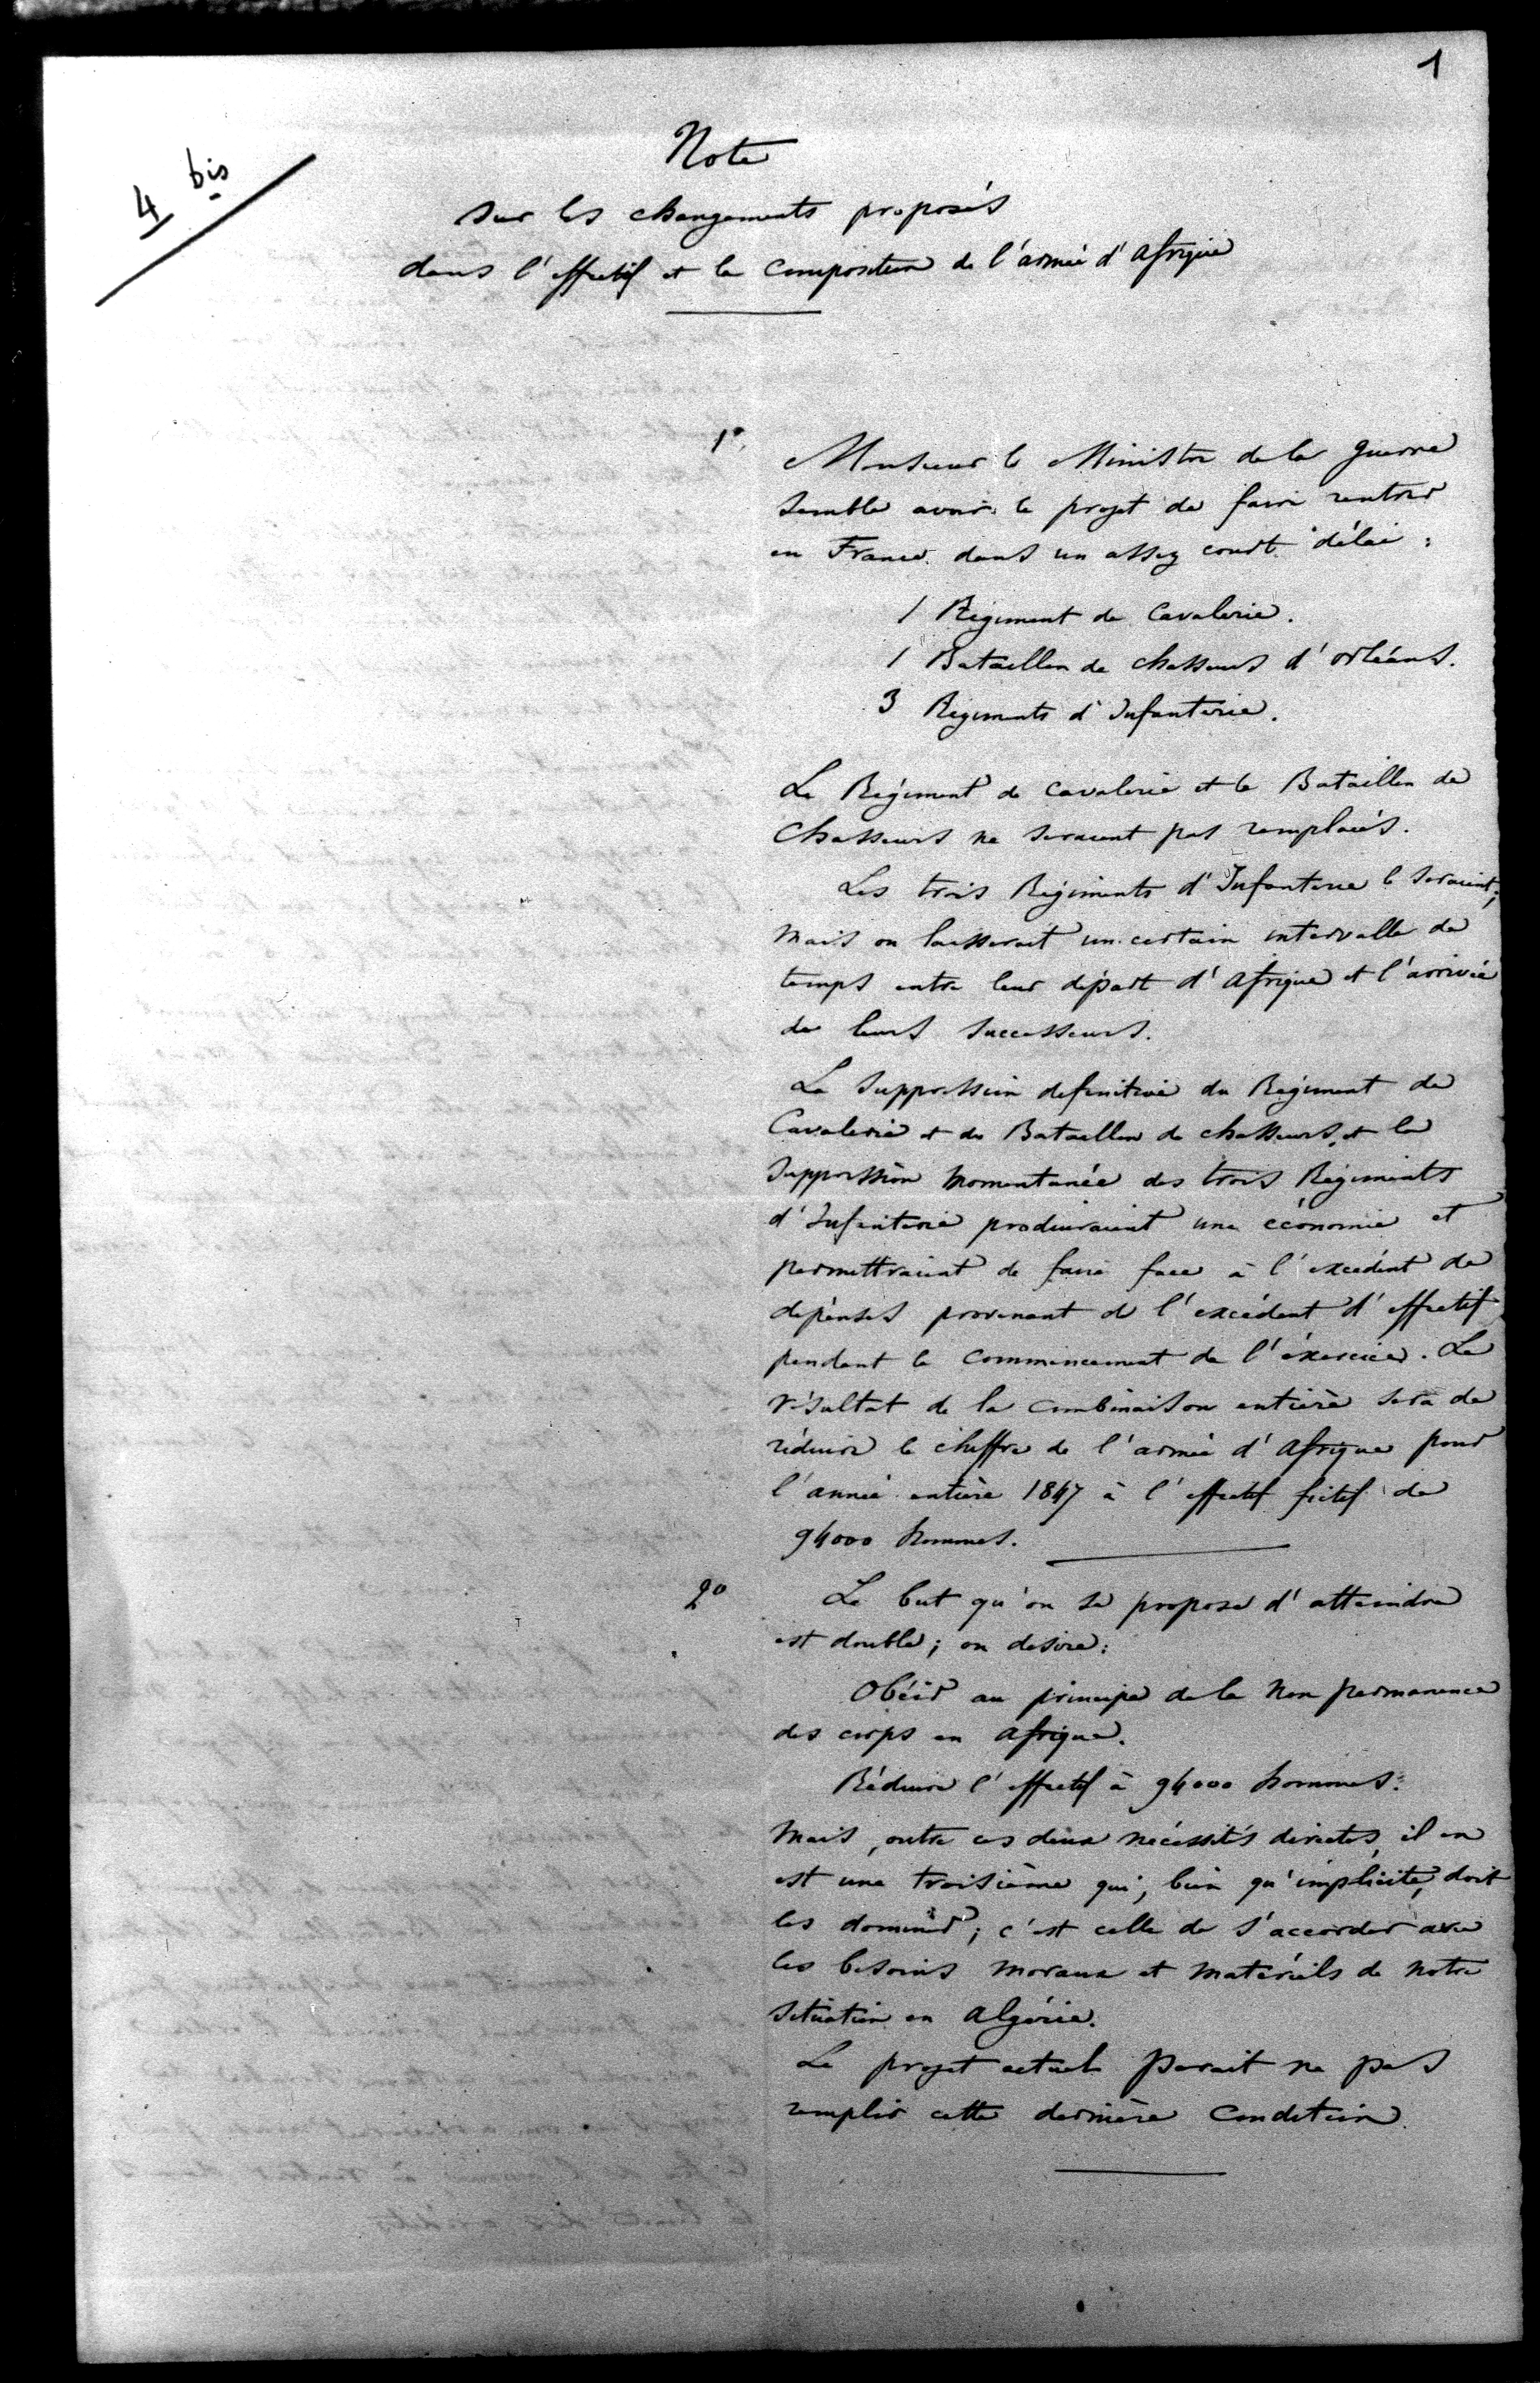 1
4 bis
Note
sur les changements proposés
dans l'effectif et la composition de l'armée d'afrique
1°
Monsieur le Ministre de la guerre
semble avoir le projet de faire rentrer
en France dans un assez court délai :
1 Régiment de Cavalerie.
1 Bataillon de chasseurs d'orléans.
3 Régiments d'Infanterie.
Le Régiment de cavalerie et le Bataillon de
Chasseurs ne seraient pas remplacés.
Les trois Régiments d'Infanterie le seraient;
mais on laisserait un certain intervalle de
temps entre leur départ d'afrique et l'arrivée
de leurs successeurs.
La suppression definitive du Régiment de
Cavalerie et du Bataillon de chasseurs, et la
suppression momentanée des trois Régiments
d'Infanterie produiraient une économie et
permettraient de faire face à l'excédent de
dépenses provenant de l'excédent d'effectif
pendant le commencement de l'éxercice. Le
résultat de la combinaison entière sera de
réduire le chiffre de l'armée d'afrique pour
l'année entière 1847 à l'effectif fictif de
94000 hommes.
2°
Le but qu'on se propose d'atteindre
est double; on desire:
Obéir au principe de la non permanence
des corps en afrique.
Réduire l'effectif à 94000 hommes.
Mais, outre ces deux nécessités directes, il en
est une troisième qui, bien qu'implicite, doit
les dominer; c'est celle de s'accorder avec
les besoins moraux et matériels de notre
situation en algérie.
Le projet actuel parait ne pas
remplir cette dernière condition.